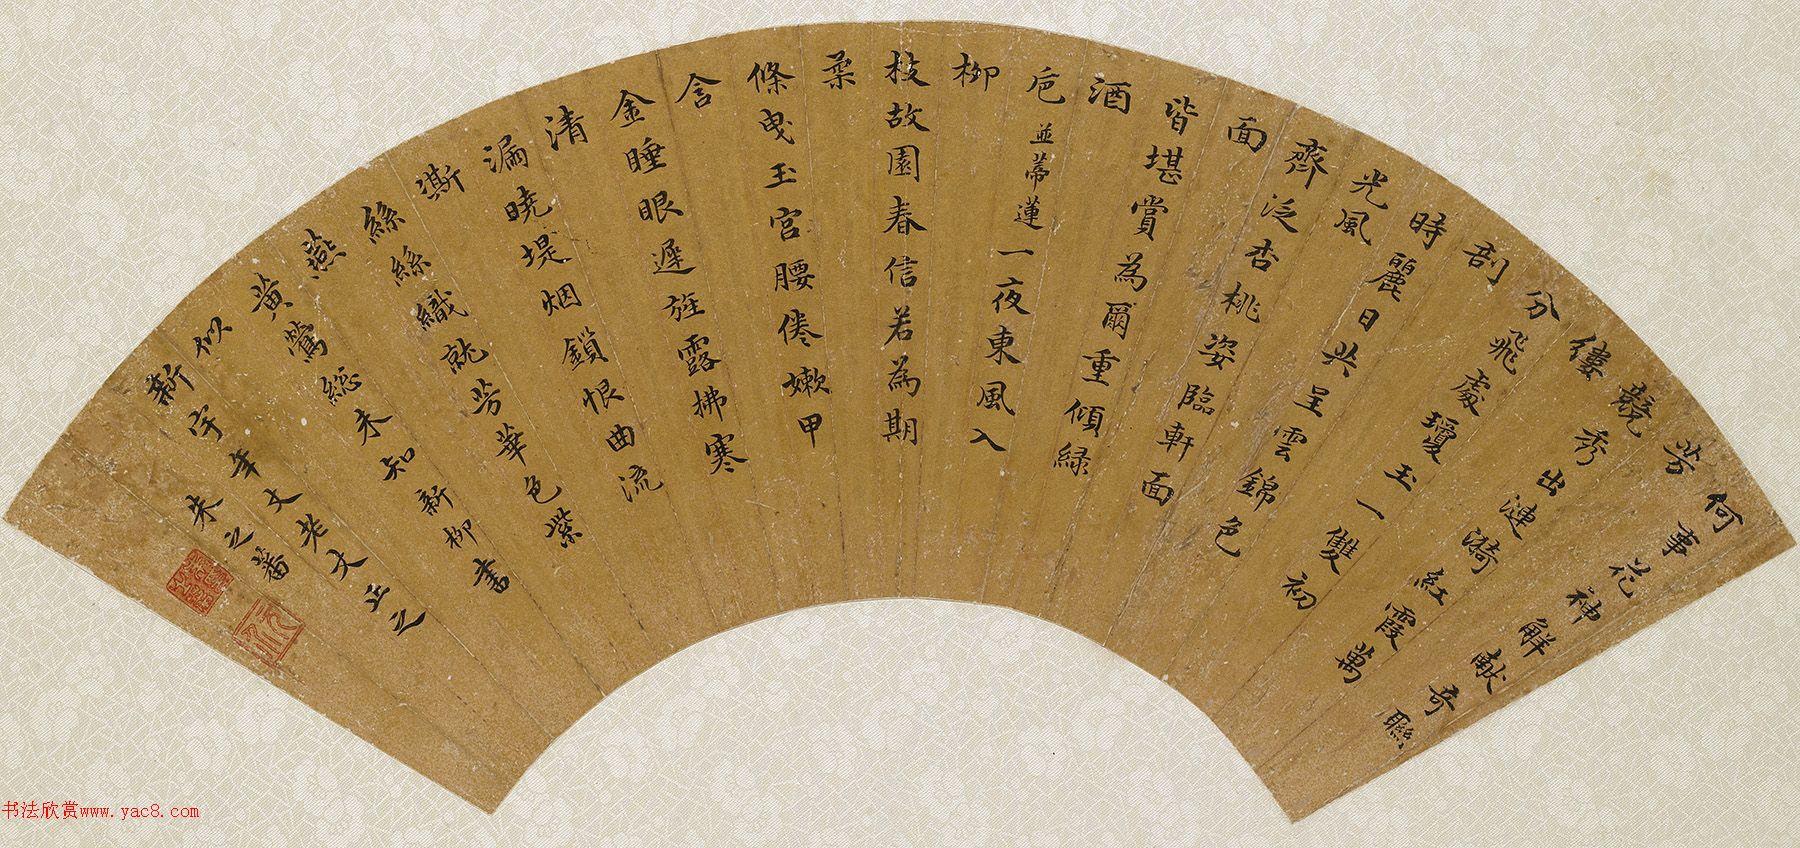 何事花神解献奇聯
芳
競秀出漣漪紅霞萬
縷
分飛處瓊玉一雙初
剖
時麗日共呈雲錦色
光風
齊泛杏桃姿臨軒面
面
皆堪賞為爾重傾緑
酒
巵 並蒂蓮 一夜東風入
柳
枝故園春信若為期
柔
條曳玉宮腰倦嫩甲
含
金睡眼遲旌露拂寒
清
漏曉堤烟鎖恨曲流
澌
絲絲織就芳華色紫
燕
黄鶯総未知新柳書
似
新宇年丈老丈正之
朱之蕃
书法欣赏www.yac8.com